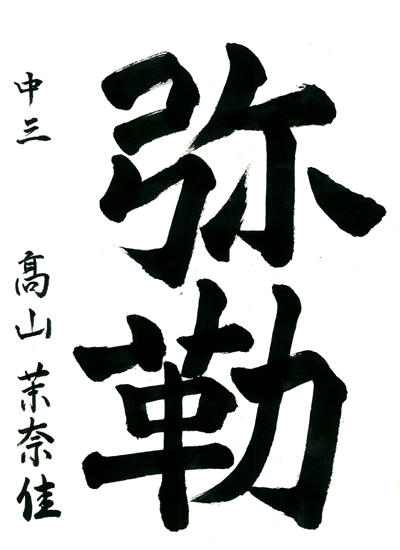 弥勒
中三 髙山茉奈佳